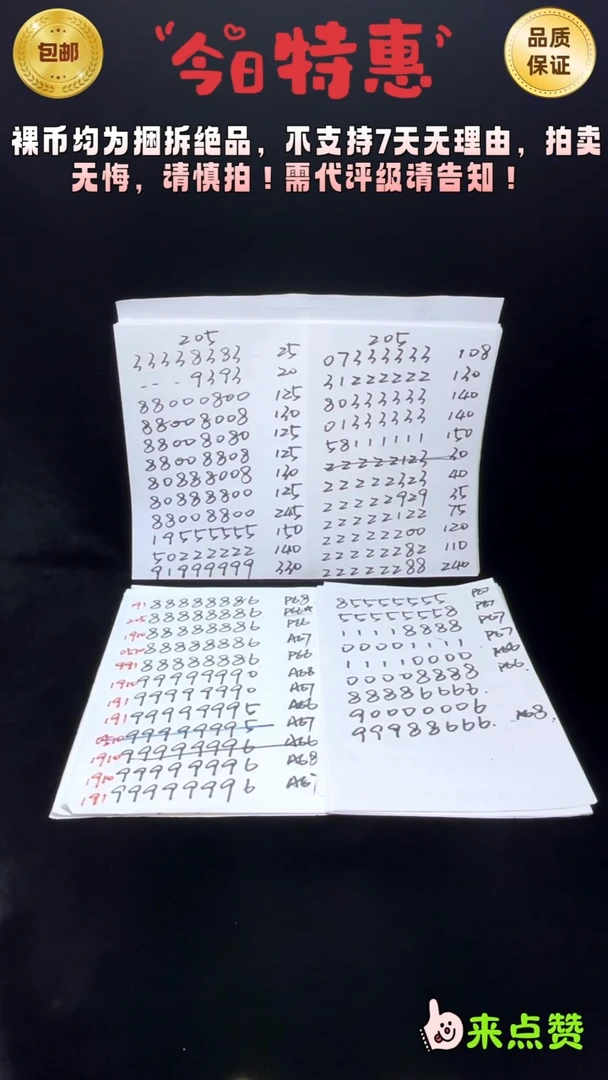 包邮
"今日特惠"
品质
保证
裸币均为捆拆绝品，不支持7天无理由，拍卖
无悔，请慎拍！需代评级请告知！
205
33338383 25
---9393 20
88000800 125
88008008 130
88008080 125
88008808 125
80888008 130
80888800 125
88008800 245
19555555 150
50222222 140
91999999 330
205
07333333 108
31222222 130
80333333 140
01333333 140
58111111 150
22222123 30
22222323 40
22222929 35
22222122 75
22222200 120
22222282 110
22222288 240
91 88888886 P68
205 88888886 P66★
1980 88888886 P66
0510 88888886 A67
991 88888886 P66
1910 99999990 A68
191 99999990 A67
191 99999995 A66
0510 99999995 A67
1910 99999996 A66
1910 99999996 A68
191 99999996 A67
85555555
55555558 P67
11118888 P67
00001111 P67
11110000
00008888 P66.
88886666.
90000006
99988666. A68.
来点赞